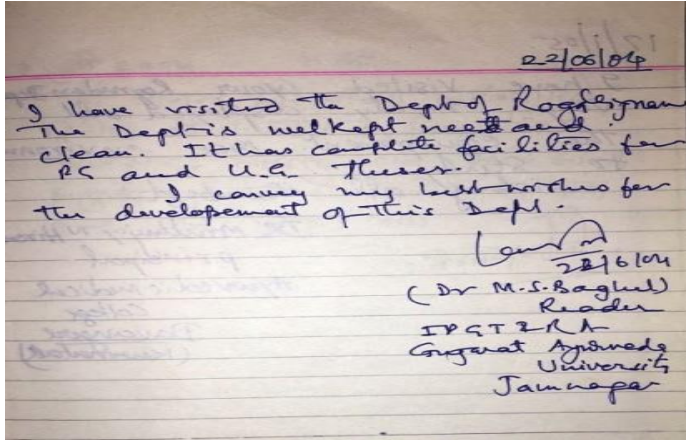 22/06/04
I have visited the Dept of Rogvignan
The Dept is wel kept neet and
clean. It has complete facilities for
PG and U.G. Theses.
I convey my best wishes for
the developement of This Dept.
22/6/04
(Dr M.S. Baghel)
Reader
IPGT & RA
Gujarat Ayurveda
University
Jamnagar